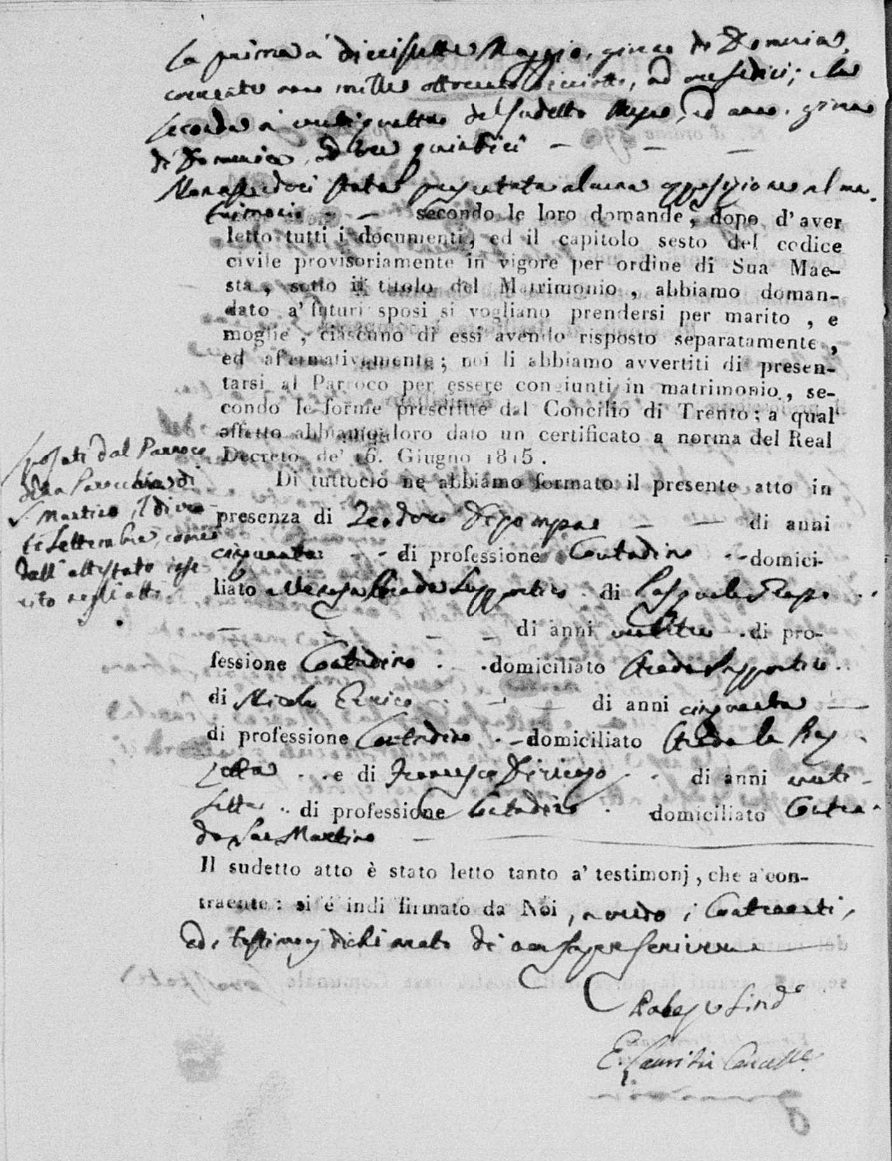 La prima a' diecisette Maggio, giorno di Domenica,
corrente anno mille ottocento dieciotto, ad ore sedici; la
seconda a' ventiquattro del sudetto Mese, ed anno, giorno
di Domenica, ad ore quindici — — —
Non essendoci stata presentata alcuna opposizione al ma
trimonio - — secondo le loro domande, dopo d'aver
letto tutti i documenti, ed il capitolo sesto del codice
civile provisoriamente in vigore per ordine di Sua Mae-
stà, sotto il titolo del Matrimonio, abbiamo doman-
dato a' futuri sposi si vogliano prendersi per marito, e
moglie, ciascuno di essi avendo risposto separatamente,
ed affermativamente; noi li abbiamo avvertiti di presen-
tarsi al Parroco per essere congiunti in matrimonio, se-
condo le forme prescritte dal Concilio di Trento; a qual
effetto abbiamo loro dato un certificato a norma del Real
Decreto de' 16. Giugno 1815.
Sposati dal Parroco
della Parocchia di
S. Martino, il dì
Settembre, come
dall'attestato inse-
rito negli atti
Di tuttociò ne abbiamo formato il presente atto in
presenza di Teodoro — — di anni
cinquanta - - di professione Contadino - - domici-
liato Strada Supportico - di Pasquale
— — — di anni ventitre - di pro-
fessione Contadino - - domiciliato Strada Supportico -
di Nicola Errico - — — di anni cinquanta —
di professione Contadino - - domiciliato Strada
- - e di Francesco - - di anni venti-
sette - - di professione Contadino - domiciliato Contra-
da San Martino —
Il sudetto atto è stato letto tanto a' testimonj, che a' con-
traente: si è indi firmato da Noi, avendo i Contraenti,
ed i testimonj dichiarato di non saper scrivere —
Sind.o
Canc.re